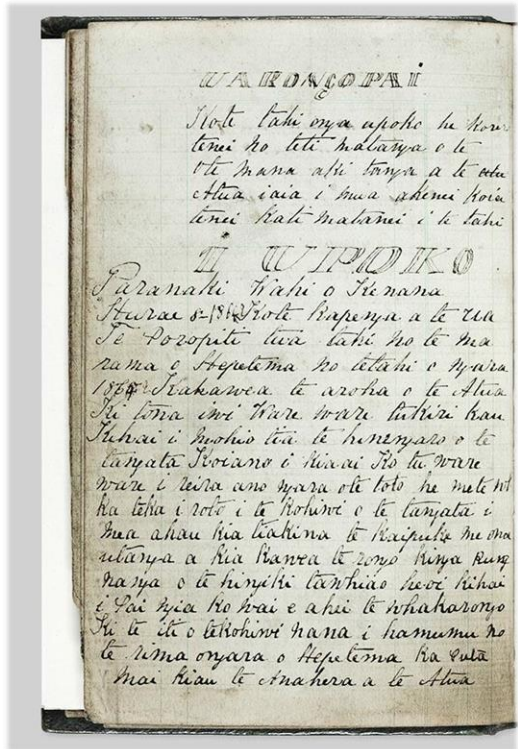 UA RONGOPAI
Kote tahi onga upoko he
tenei no teti matanga o te
ote mana aki tanga a te
Atua iaia i mua akenei koia
tenei kati matanei i te tahi
I UPOKO
Taranaki Wahi o Kenana
Hurae 8-186 Kote kapenga a te rua
Te Poropiti tua tahi no te ma
rama o Hepetema no tetahi o ngara
186 Kakawea te aroha o te Atua
Ki tona iwi Ware ware tukiri kau
Kihai i mohio tia te hinengaro o te
tangata Koiano i kiaai Ko tu ware
ware i reira ano ngara ote toto he mete
ka teka i roto i te kohiwi o te tangata i
mea ahau kia tiakina te kaipuke me ona
utanga a kia kawea te rongo kinga
nanga o te hingiki tawhiao hevi kihai
i Pai ngia ko wai e ahei te whakarongo
Ki te iti o tekohiwi nana i hamumu no
te rima ongara o Hepetema ka puta
mai kiau te Anahera a te Atua